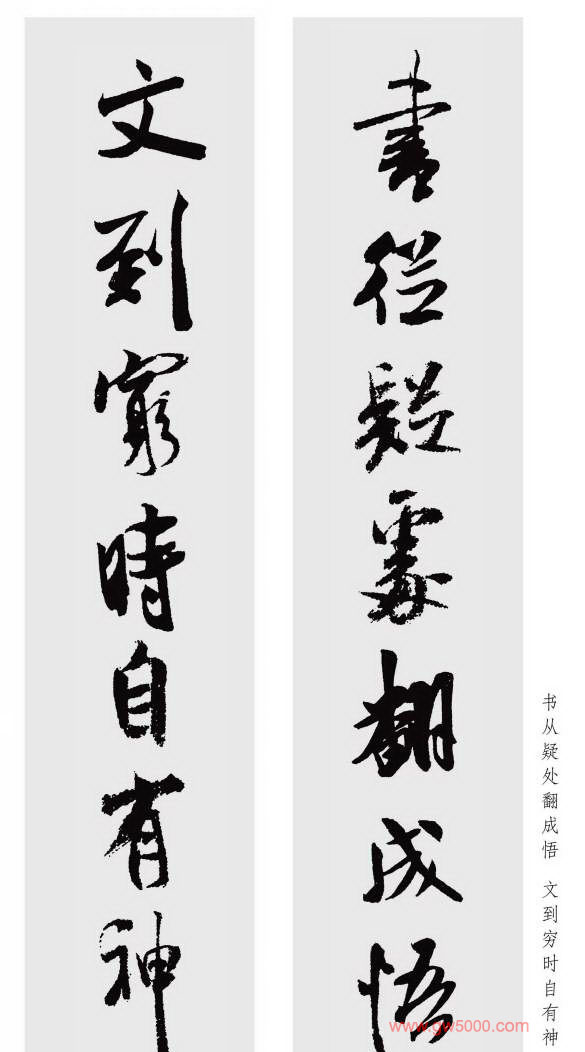 書從疑處翻成悟
文到窮時自有神
书从疑处翻成悟 文到穷时自有神
www.gw5000.com